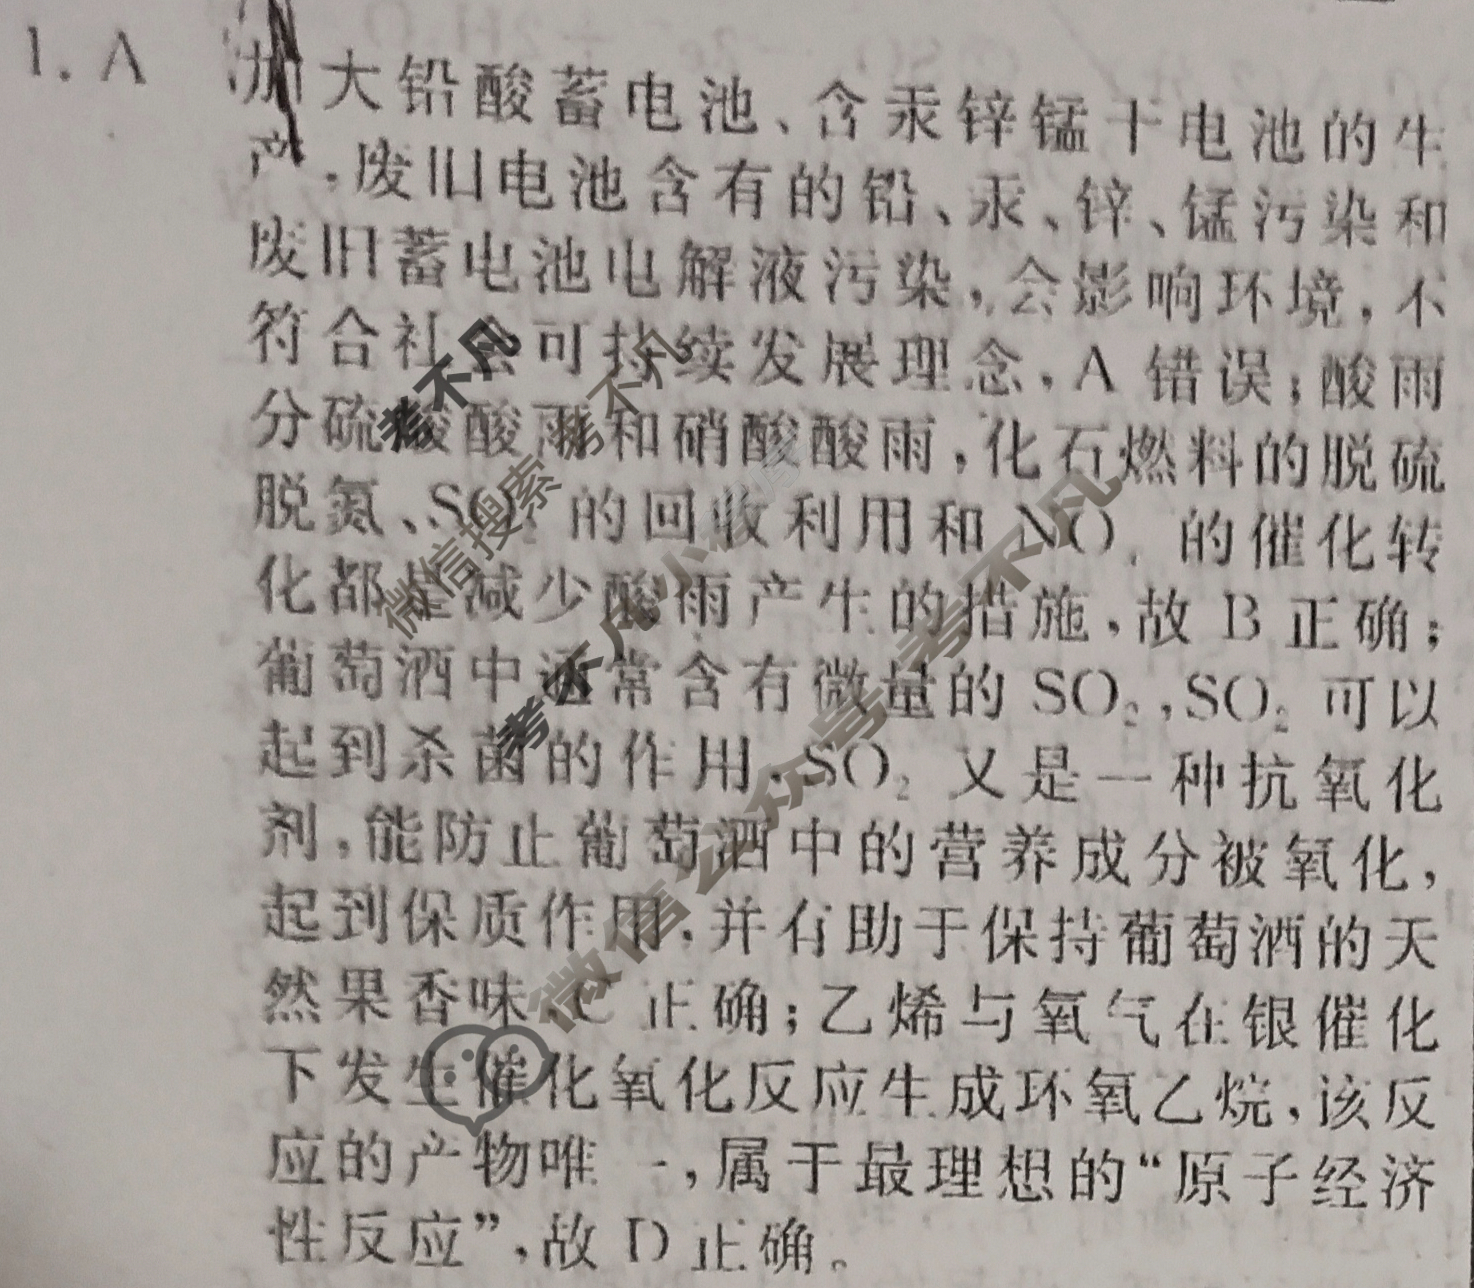 1. A 加大铅酸蓄电池、含汞锌锰干电池的生
产,废旧电池含有的铅、汞、锌、锰污染和
废旧蓄电池电解液污染,会影响环境,不
符合社会可持续发展理念,A 错误;酸雨
分硫酸酸雨和硝酸酸雨,化石燃料的脱硫
脱氮、SO₂ 的回收利用和 NOₓ 的催化转
化都是减少酸雨产生的措施,故 B 正确;
葡萄酒中通常含有微量的 SO₂,SO₂ 可以
起到杀菌的作用,SO₂ 又是一种抗氧化
剂,能防止葡萄酒中的营养成分被氧化,
起到保质作用,并有助于保持葡萄酒的天
然果香味,C 正确;乙烯与氧气在银催化
下发生催化氧化反应生成环氧乙烷,该反
应的产物唯一,属于最理想的“原子经济
性反应”,故 D 正确。
考不凡
微信搜索 考不凡
考不凡小
微信公众号 考不凡